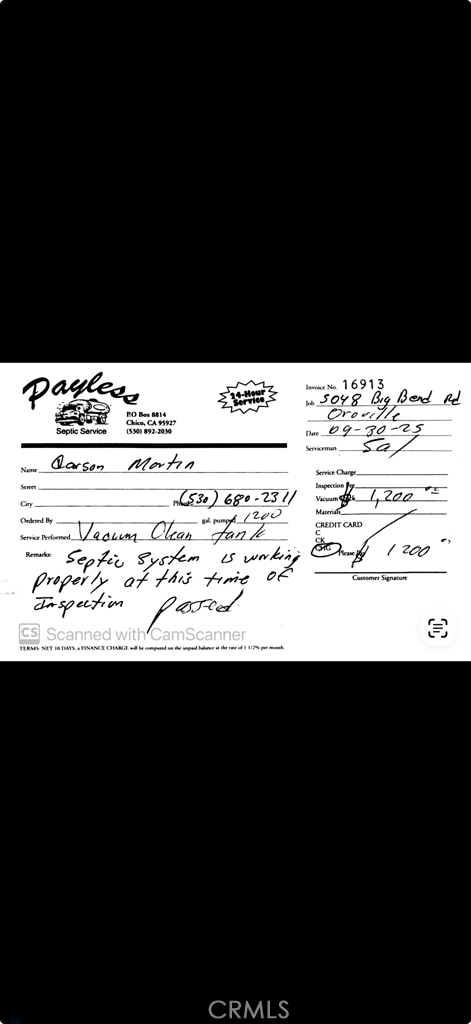 Payless
Septic Service
P.O Box 8814
Chico, CA 95927
(530) 892-2030
24-Hour
Service
Invoice No. 16913
Job 5048 Big Bend Rd
Oroville
Date 09-30-25
Serviceman Sal
Name Carson Martin
Street
City Phone (530) 680-2311
Ordered By gal. pumped 1200
Service Performed Vacuum Clean tank
Remarks: Septic System is working
properly at this time of
Inspection passed
Service Charge
Inspection Fee
Vacuum $ 1,200 00
Materials
CREDIT CARD
C
CK
CHG Please Pay $ 1200 00
Customer Signature
CS Scanned with CamScanner
TERMS: NET 10 DAYS, a FINANCE CHARGE will be computed on the unpaid balance at the rate of 1 1/2% per month.
CRMLS